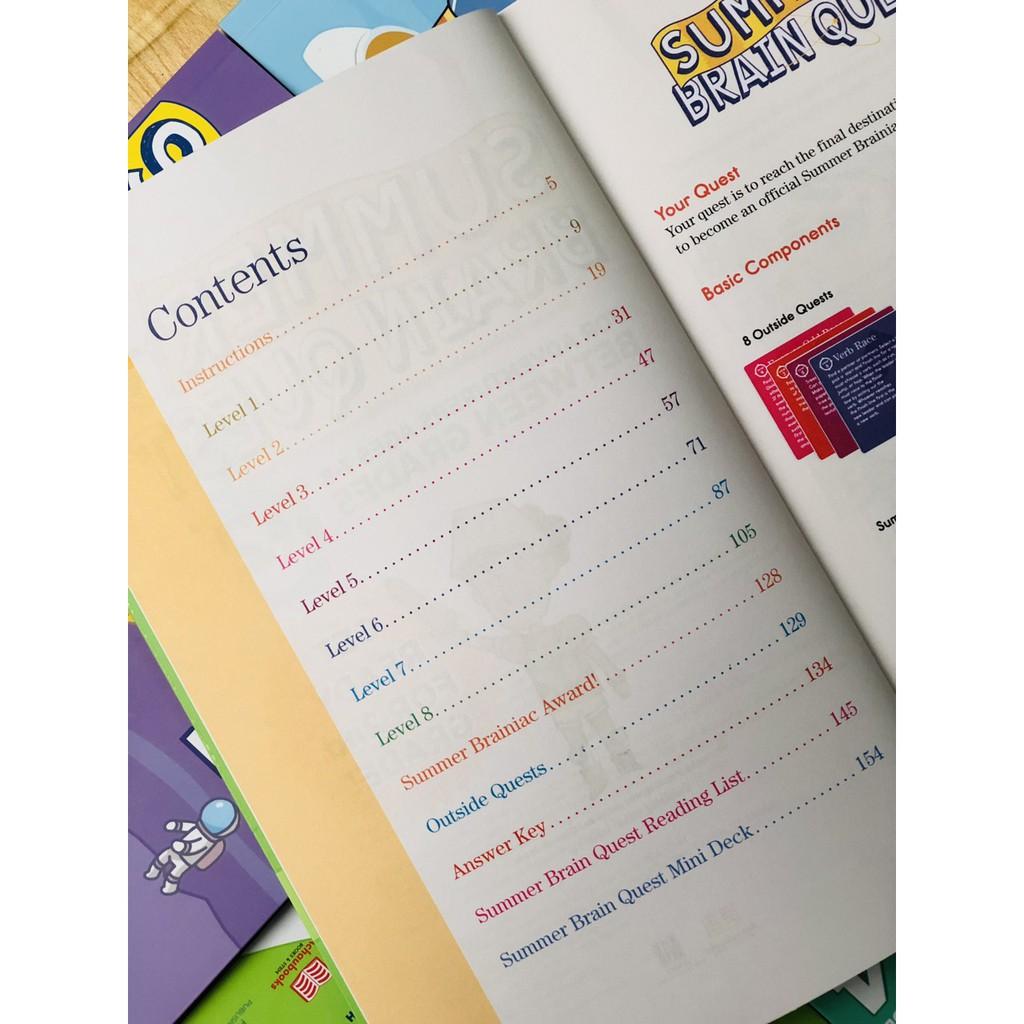 Contents
Instructions 5
Level 1 9
Level 2 19
Level 3 31
Level 4 47
Level 5 57
Level 6 71
Level 7 87
Level 8 105
Summer Brainiac Award! 128
Outside Quests 129
Answer Key 134
Summer Brain Quest Reading List 145
Summer Brain Quest Mini Deck 154
BRAIN
Your Quest
Your quest is to reach the final
to become an official Summer
Basic Components
8 Outside Quests
Verb Race
chaubooks
BOOKS & ITEM